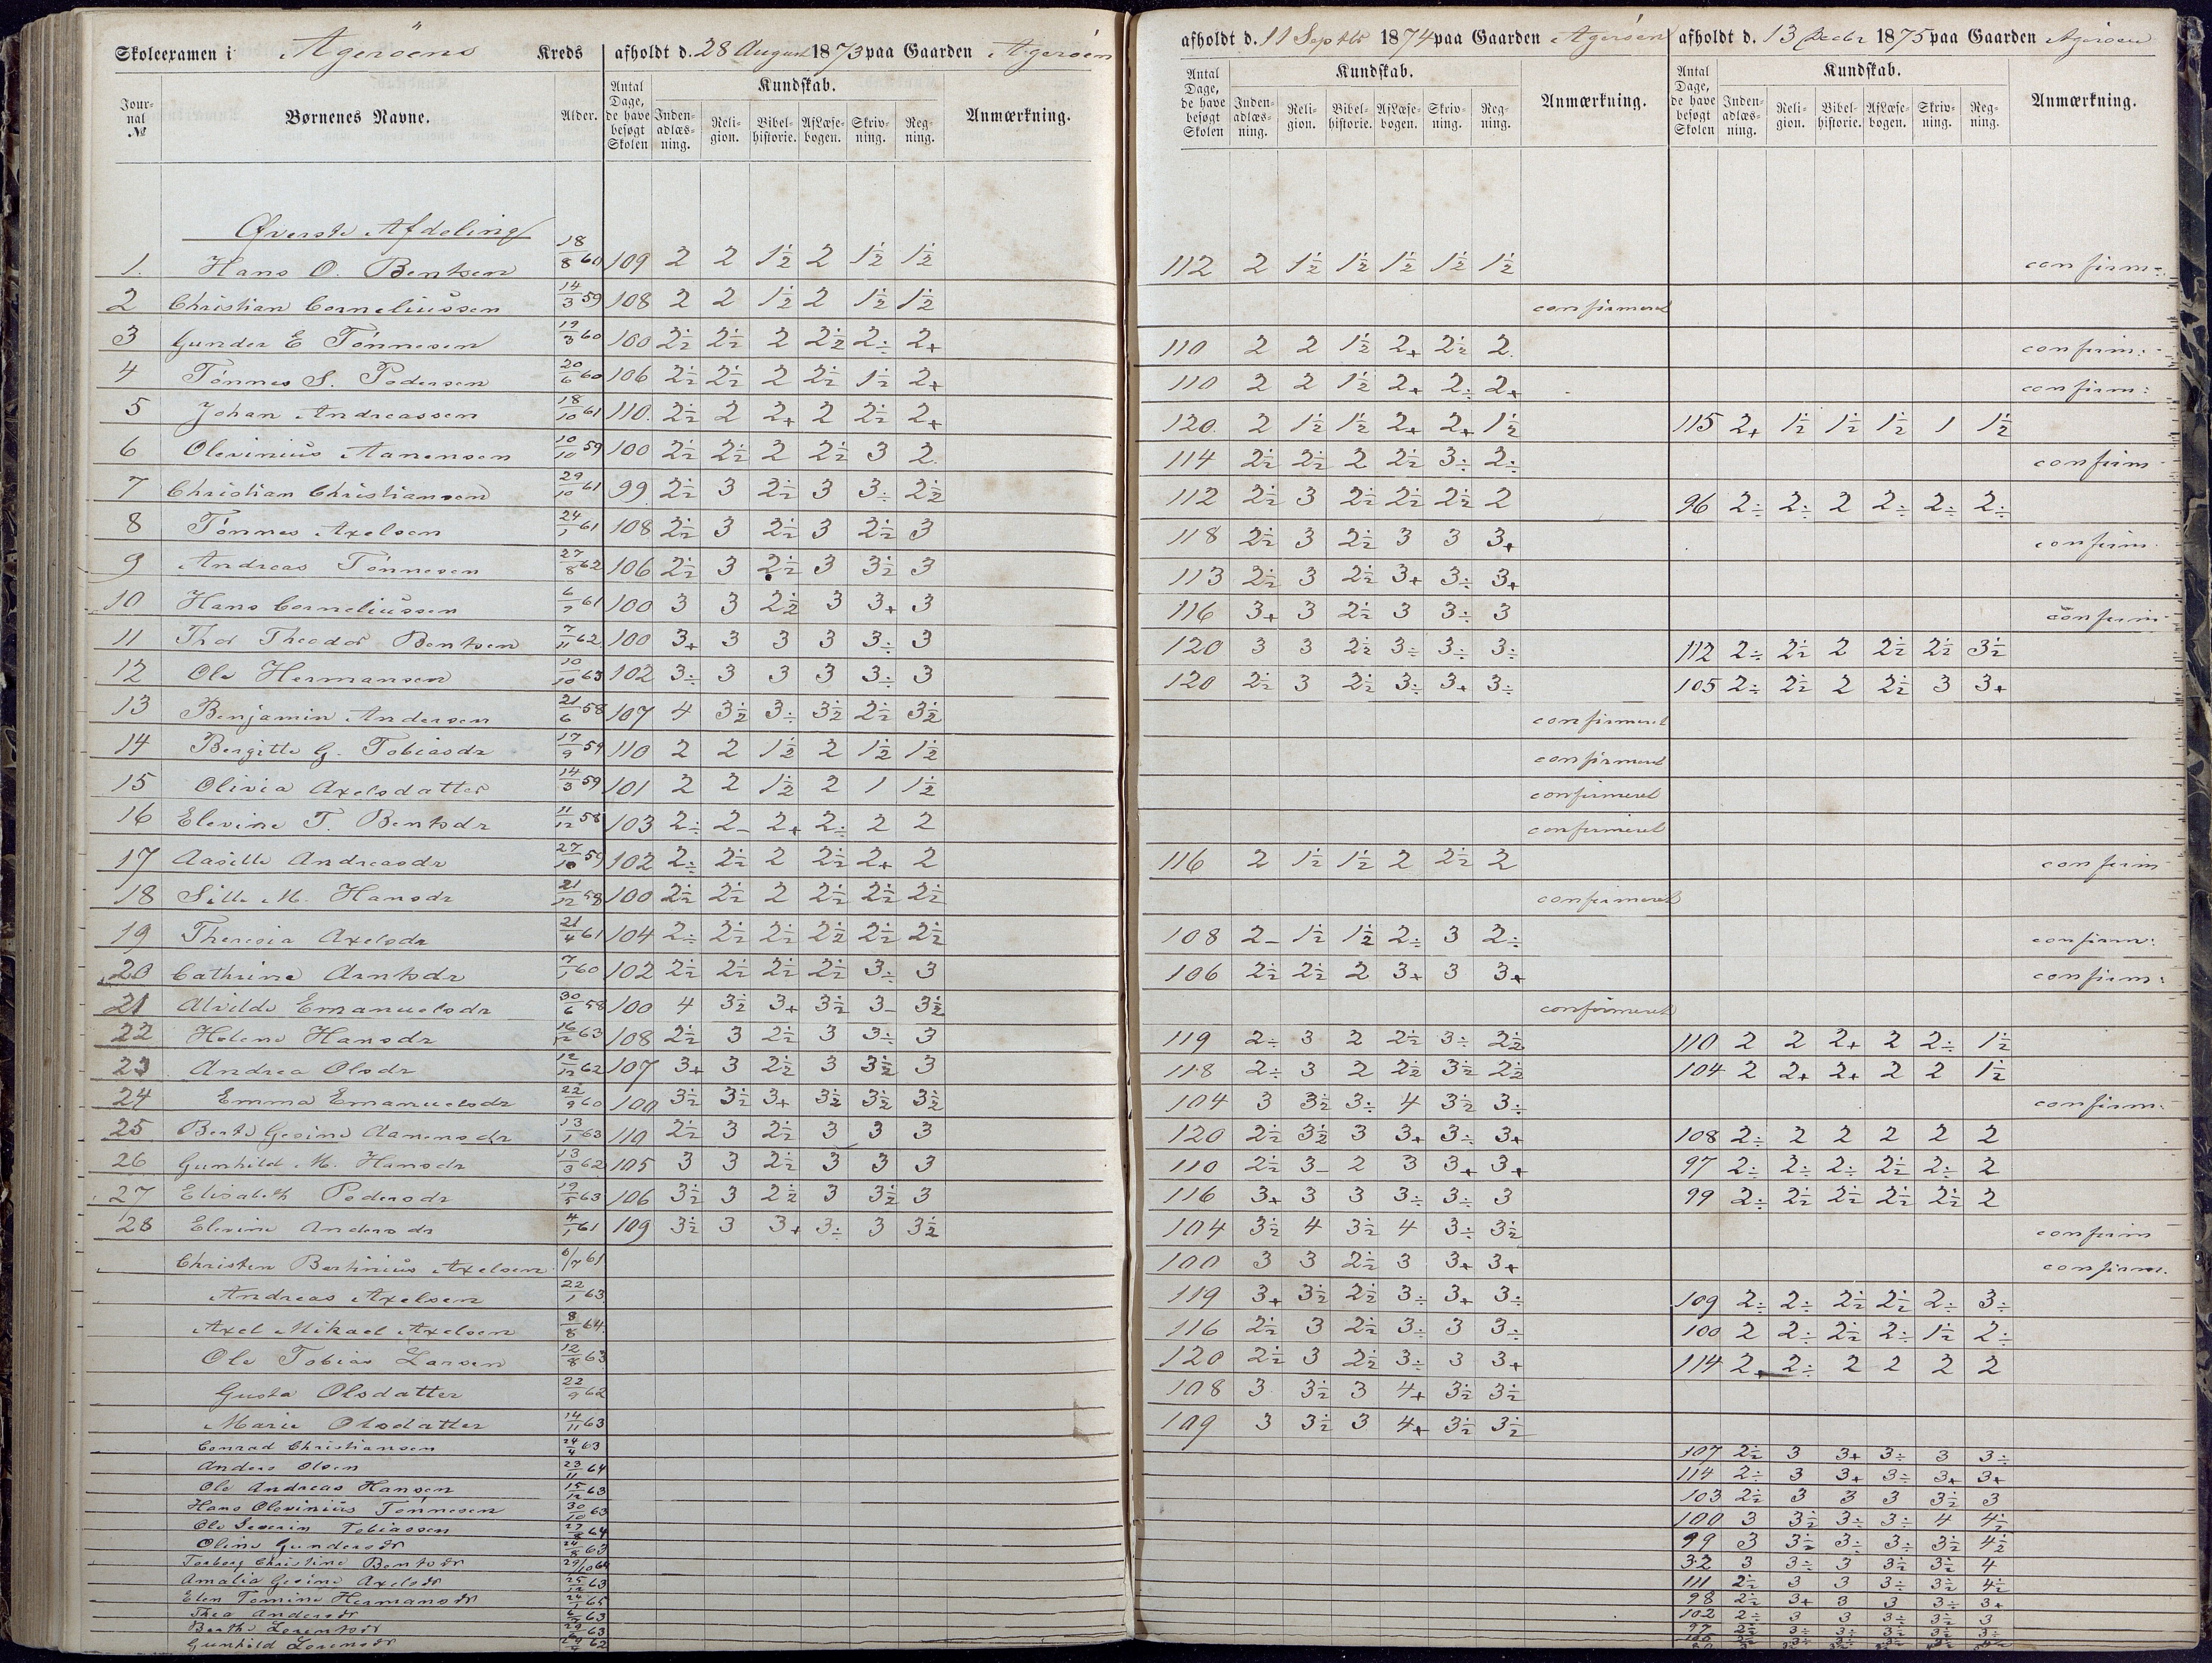 Skoleexamen i Ageröens Kreds afholdt d. 28 August 1873 paa Gaarden Ageröen
afholdt d. 11 Septbr 1874 paa Gaarden Ageröen afholdt d. 13 Decbr 1875 paa Gaarden Ageröen
Journal № Børnenes Navne. Alder. Antal Dage, de have besøgt Skolen Kundskab. Inden-adlæs-ning. Reli-gion. Bibel-historie. AfLæse-bogen. Skriv-ning. Reg-ning. Anmærkning.
Antal Dage, de have besøgt Skolen Kundskab. Inden-adlæs-ning. Reli-gion. Bibel-historie. AfLæse-bogen. Skriv-ning. Reg-ning. Anmærkning.
Antal Dage, de have besøgt Skolen Kundskab. Inden-adlæs-ning. Reli-gion. Bibel-historie. AfLæse-bogen. Skriv-ning. Reg-ning. Anmærkning.
Øverste Afdeling
1. Hans O. Bentsen 18/8 60 109 2 2 1½ 2 1½ 1½ 112 2 1½ 1½ 1½ 1½ 1½ confirm:
2 Christian Corneliussen 14/3 59 108 2 2 1½ 2 1½ 1½ confirmeret
3 Gunder E Tönnesen 19/3 60 100 2½ 2½ 2 2½ 2÷ 2+ 110 2 2 1½ 2+ 2½ 2. confirm:
4 Tönnes S. Pedersen 20/6 60 106 2½ 2½ 2 2½ 1½ 2+ 110 2 2 1½ 2+ 2÷ 2+ confirm:
5 Johan Andreassen 18/10 61 110. 2½ 2 2+ 2 2½ 2+ 120. 2 1½ 1½ 2+ 2+ 1½ 115 2+ 1½ 1½ 1½ 1 1½
6 Olevinius Aanensen 10/10 59 100 2½ 2½ 2 2½ 3 2. 114 2½ 2½ 2 2½ 3÷ 2÷ confirm
7 Christian Christiansen 29/10 61 99 2½ 3 2½ 3 3÷ 2½ 112 2½ 3 2½ 2½ 2½ 2 96 2÷ 2÷ 2 2÷ 2÷ 2÷
8 Tönnes Axelsen 24/1 61 108 2½ 3 2½ 3 2½ 3 118 2½ 3 2½ 3 3 3+ confirm
9 Andreas Tönnesen 27/8 62 106 2½ 3 2½ 3 3½ 3 113 2½ 3 2½ 3+ 3÷ 3+
10 Hans Corneliussen 61 100 3 3 2½ 3 3+ 3 116 3+ 3 2½ 3 3÷ 3 confirm
11 Thor Theodor Bentsen 7/11 62 100 3+ 3 3 3 3÷ 3 120 3 3 2½ 3÷ 3÷ 3÷ 112 2÷ 2½ 2 2½ 2½ 3½
12 Ole Hermansen 10/10 63 102 3÷ 3 3 3 3÷ 3 120 2½ 3 2½ 3÷ 3+ 3÷ 105 2÷ 2½ 2 2½ 3 3+
13 Benjamin Andersen 21/6 58 107 4 3½ 3÷ 3½ 2½ 3½ confirmeret
14 Bergitte G. Tobiasdr 17/9 59 110 2 2 1½ 2 1½ 1½ confirmeret
15 Olivia Axelsdatter 14/3 59 101 2 2 1½ 2 1 1½ confirmeret
16 Elevine T. Bentsdr 11/12 58 103 2÷ 2- 2+ 2÷ 2 2 confirmeret
17 Aasille Andreasdr 27/10 59 102 2÷ 2½ 2 2½ 2+ 2 116 2 1½ 1½ 2 2½ 2 confirm
18 Sille M. Hansdr 21/12 58 100 2½ 2½ 2 2½ 2½ 2½ confirmeret
19 Theresia Axelsdr 21/4 61 104 2÷ 2½ 2½ 2½ 2½ 2½ 108 2- 1½ 1½ 2÷ 3 2÷ confirm:
20 Cathrine Arntsdr 7/1 60 102 2½ 2½ 2½ 2½ 3÷ 3 106 2½ 2½ 2 3+ 3 3+ confirm:
21 Alvilde Emanuelsdr 30/6 58 100 4 3½ 3+ 3½ 3- 3½ confirmeret
22 Helene Hansdr 16/12 63 108 2½ 3 2½ 3 3÷ 3 119 2÷ 3 2 2½ 3÷ 2½ 110 2 2 2+ 2 2÷ 1½
23 Andrea Olsdr 12/12 62 107 3+ 3 2½ 3 3½ 3 118 2÷ 3 2 2½ 3½ 2½ 104 2 2+ 2+ 2 2 1½
24 Emma Emanuelsdr 22/9 60 100 3½ 3½ 3+ 3½ 3½ 3½ 104 3 3½ 3÷ 4 3½ 3÷ confirm:
25 Berte Gesine Aanensdr 13/1 63 110 2½ 3 2½ 3 3 3 120 2½ 3½ 3 3+ 3÷ 3+ 108 2÷ 2 2 2 2 2
26 Gunhild M. Hansdr 13/3 62 105 3 3 2½ 3 3 3 110 2½ 3- 2 3 3+ 3+ 97 2÷ 2÷ 2÷ 2½ 2÷ 2
27 Elisabeth Pedersdr 19/5 63 106 3½ 3 2½ 3 3½ 3 116 3+ 3 3 3÷ 3÷ 3 99 2÷ 2½ 2½ 2½ 2½ 2
28 Elevine Andersdr 4/1 61 109 3½ 3 3+ 3÷ 3 3½ 104 3½ 4 3½ 4 3÷ 3½ confirm
Christen Bertinius Axelsen 6/7 61 100 3 3 2½ 3 3+ 3+ confirm.
Andreas Axelsen 22/1 63 119 3+ 3½ 2½ 3÷ 3+ 3÷ 109 2÷ 2÷ 2½ 2½ 2÷ 3÷
Axel Mikael Axelsen 8/8 64. 116 2½ 3 2½ 3÷ 3 3÷ 100 2 2÷ 2½ 2÷ 1½ 2÷
Ole Tobias Larsen 12/8 63 120 2½ 3 2½ 3÷ 3 3+ 114 2+ 2÷ 2 2 2 2
Gusta Olsdatter 22/9 62 108 3 3½ 3 4+ 3½ 3½
Marie Olsdatter 14/11 63 109 3 3½ 3 4+ 3½ 3½
Conrad Christiansen 24/4 63 107 2½ 3 3+ 3÷ 3 3÷
Anders Olsen 23/11 64 114 2÷ 3 3+ 3÷ 3+ 3+
Ole Andreas Hansen 15/12 63 103 2½ 3 3 3 3½ 3
Hans Olevinius Tönnesen 30/10 63 100 3 3½ 3÷ 3÷ 4 4½
Ole Severin Tobiassen 27/8 64 99 3 3½ 3÷ 3÷ 3½ 4½
Oline Gundersdr 24/8 63 32 3 3÷ 3 3½ 3½ 4
Torborg Christine Bentsdr 29/10 64 111 2½ 3 3 3÷ 3½ 4½
Amalia Gesine Axelsdr 25/12 63 98 2½ 3+ 3 3 3÷ 3+
Elen Tomine Hermansdr 24/1 65 102 2÷ 3 3 3½ 3½ 3
Thea Andersdr 63 97 2½ 3÷ 3÷ 3½ 3½ 3÷
Berthe Lorentsdr 63
Gunhild Lorensdr 62